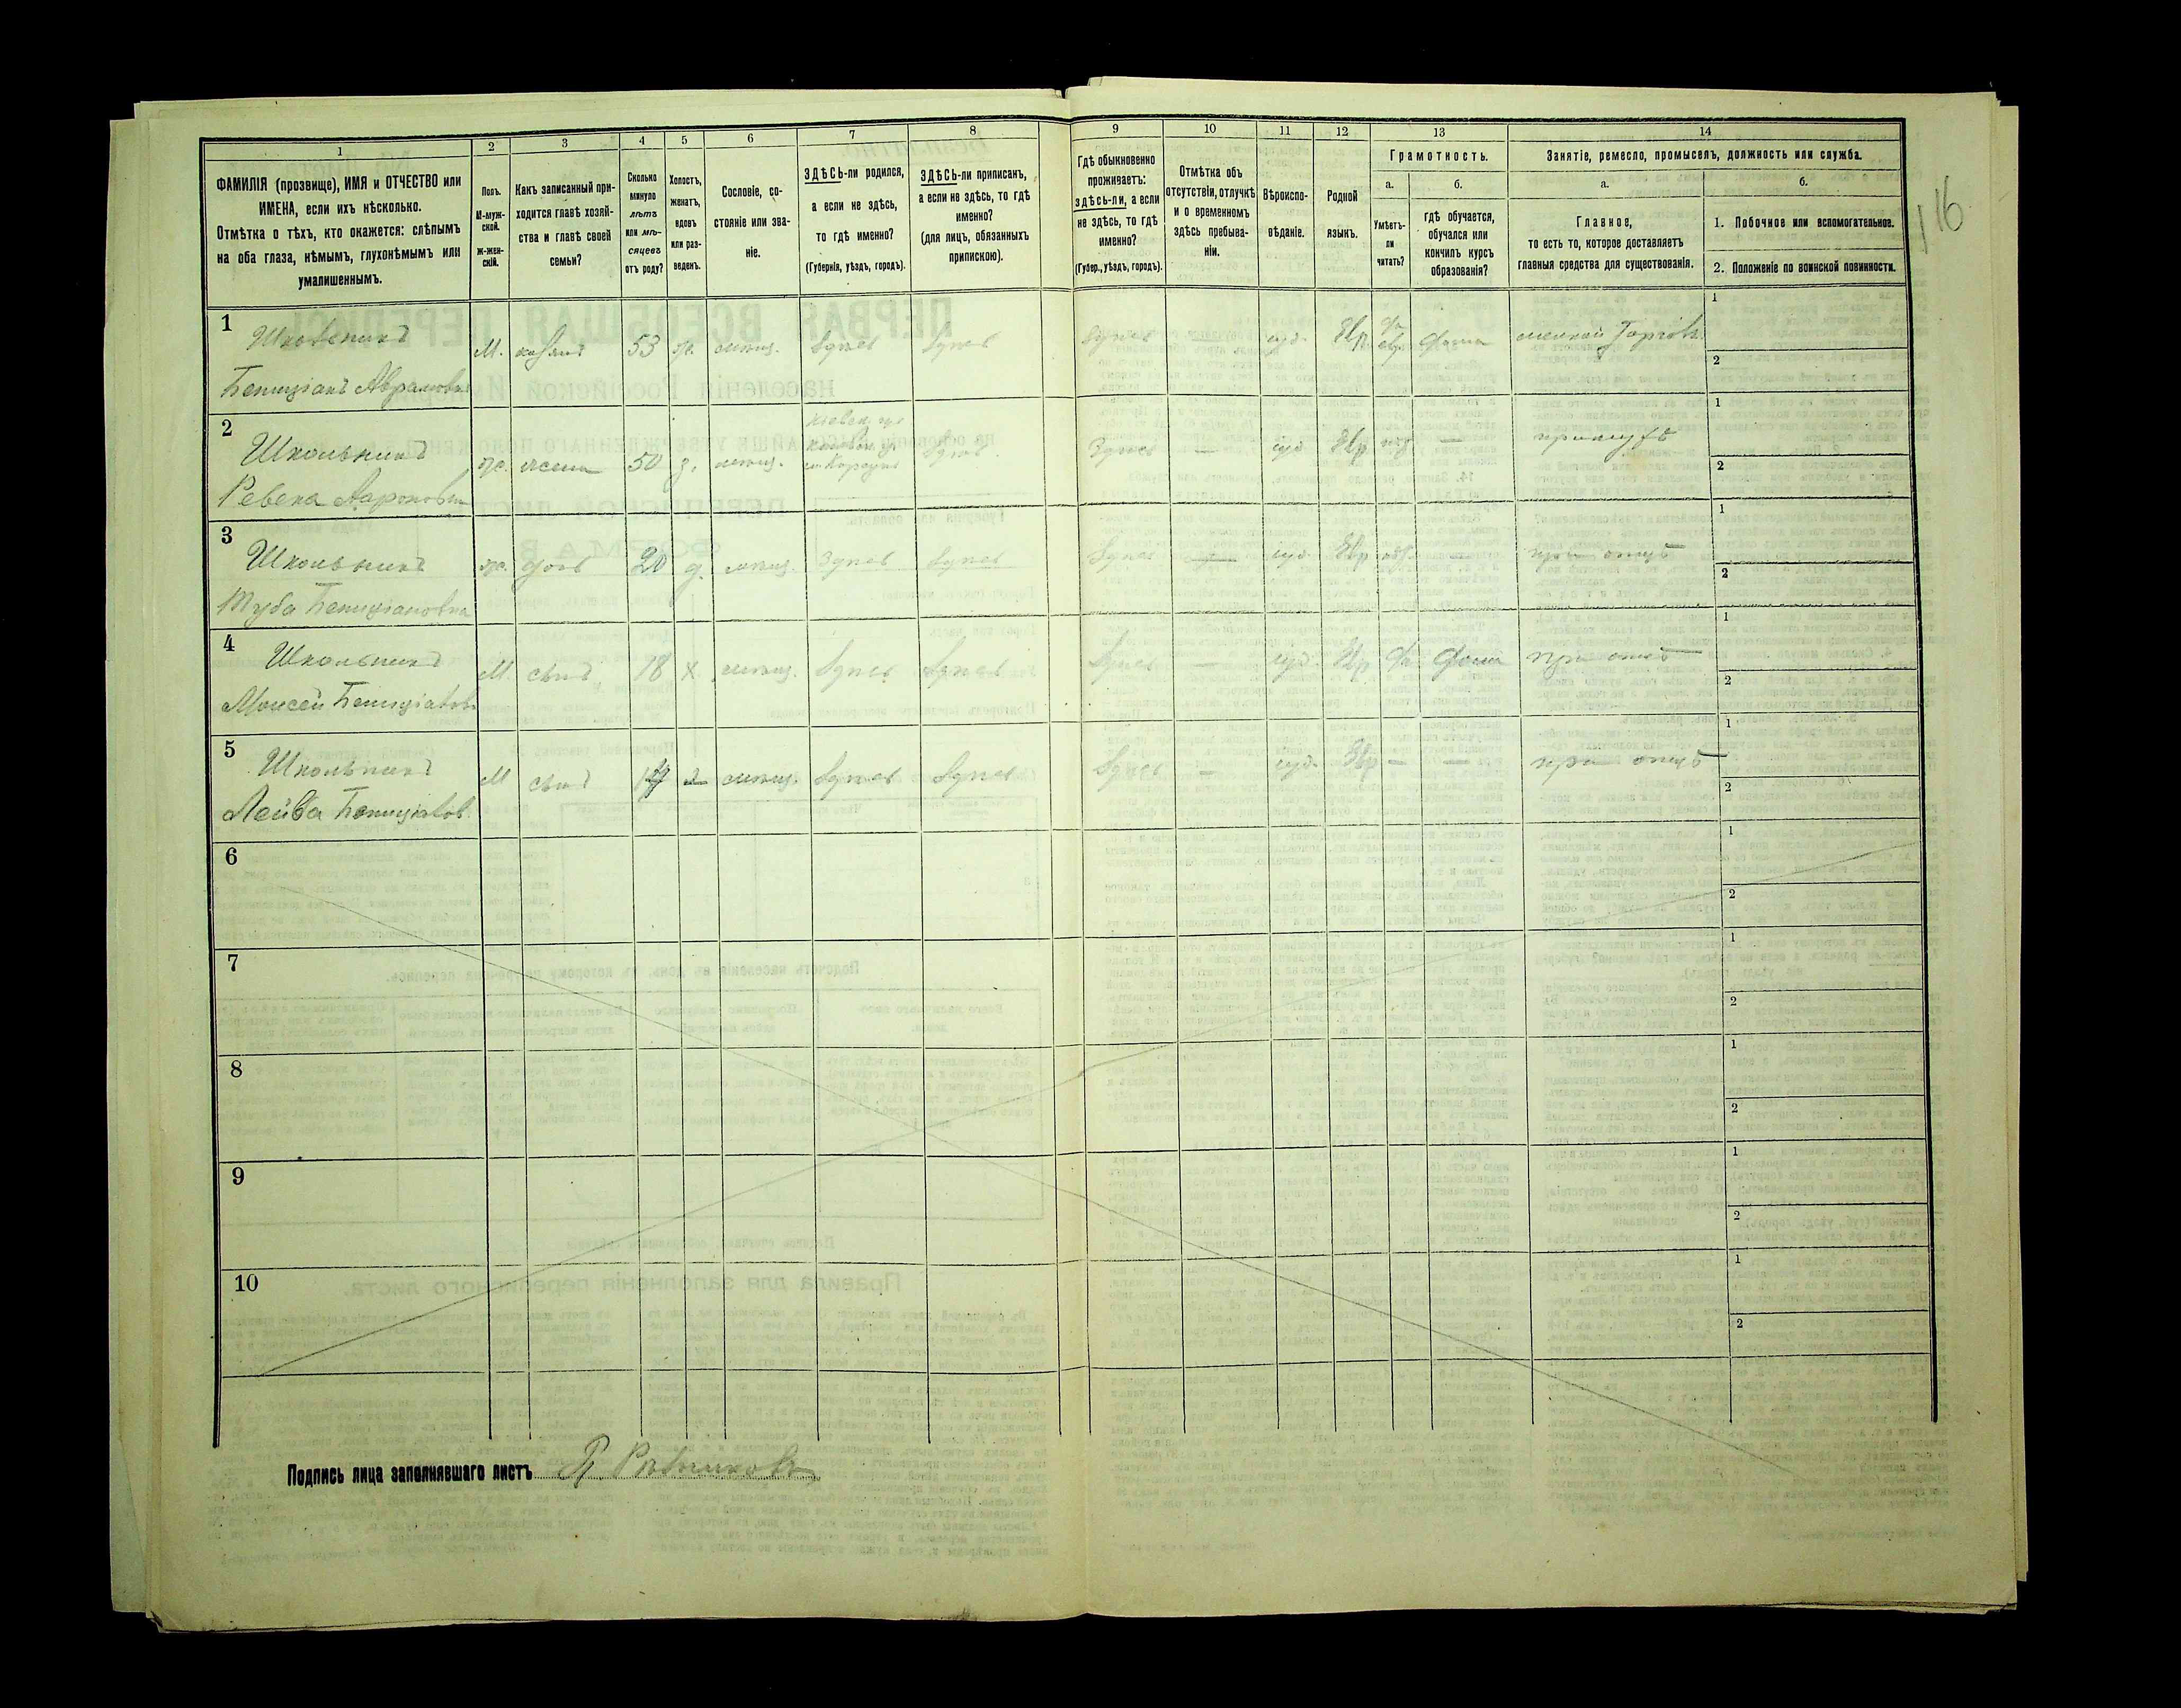 116
1
2
3
4
5
6
7
8
9
10
11
12
13
14
ФАМИЛІЯ (прозвище), ИМЯ и ОТЧЕСТВО или
ИМЕНА, если ихъ нѣсколько.
Отмѣтка о тѣхъ, кто окажется: слѣпымъ
на оба глаза, нѣмымъ, глухонѣмымъ или
умалишеннымъ.
Полъ.
М-муж-
ской.
Ж-жен-
скій.
Какъ записанный при-
ходится главѣ хозяй-
ства и главѣ своей
семьи?
Сколько
минуло
лѣтъ
или мѣ-
сяцевъ
отъ роду?
Холостъ,
женатъ,
вдовъ
или раз-
веденъ.
Сословіе, со-
стояніе или зва-
ніе.
ЗДѢСЬ-ли родился,
а если не здѣсь,
то гдѣ именно?
(Губернія, уѣздъ, городъ).
ЗДѢСЬ-ли приписанъ,
а если не здѣсь, то гдѣ
именно?
(для лицъ, обязанныхъ
припискою).
Гдѣ обыкновенно
проживаетъ:
здѣсь-ли, а если
не здѣсь, то гдѣ
именно?
(Губер., уѣздъ, городъ).
Отмѣтка объ
отсутствіи, отлучкѣ
и о временномъ
здѣсь пребыва-
ніи.
Вѣроиспо-
вѣданіе.
Родной
языкъ.
Грамотность.
а.
Умѣетъ-
ли
читать?
б.
гдѣ обучается,
обучался или
кончилъ курсъ
образованія?
Занятіе, ремесло, промыселъ, должность или служба.
а.
Главное,
то есть то, которое доставляетъ
главныя средства для существованія.
б.
1. Побочное или вспомогательное.
2. Положеніе по воинской повинности.
1
Школьникъ
Бенціанъ Абрамовъ
М. хозяинъ 53 ж. мѣщ. Здѣсь Здѣсь Здѣсь іуд. Евр. дома
1
2
2
Школьникъ
Ревека Аароновна
ж. жена 50 з. мѣщ. Кіевск. гу. Здѣсь Здѣсь — іуд. Евр. — при мужѣ
1
2
3
Школьникъ
Туба Бенціановна
ж. дочь 20 д. мѣщ. Здѣсь Здѣсь Здѣсь — іуд. Евр. — при отцѣ
1
2
4
Школьникъ
Моисей Бенціановъ
М. сынъ 18 х. мѣщ. Здѣсь Здѣсь Здѣсь — іуд. Евр. да дома при отцѣ
1
2
5
Школьникъ
Лейба Бенціанов.
М сынъ мѣщ. Здѣсь Здѣсь Здѣсь — іуд. Евр — — при отцѣ
1
2
6
1
2
7
1
2
8
1
2
9
1
2
10
1
2
Подпись лица заполнявшаго листъ